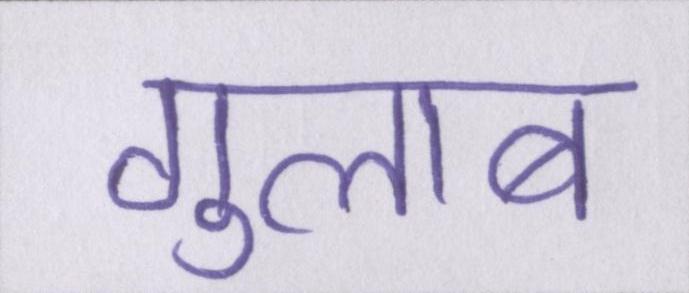 गुलाब